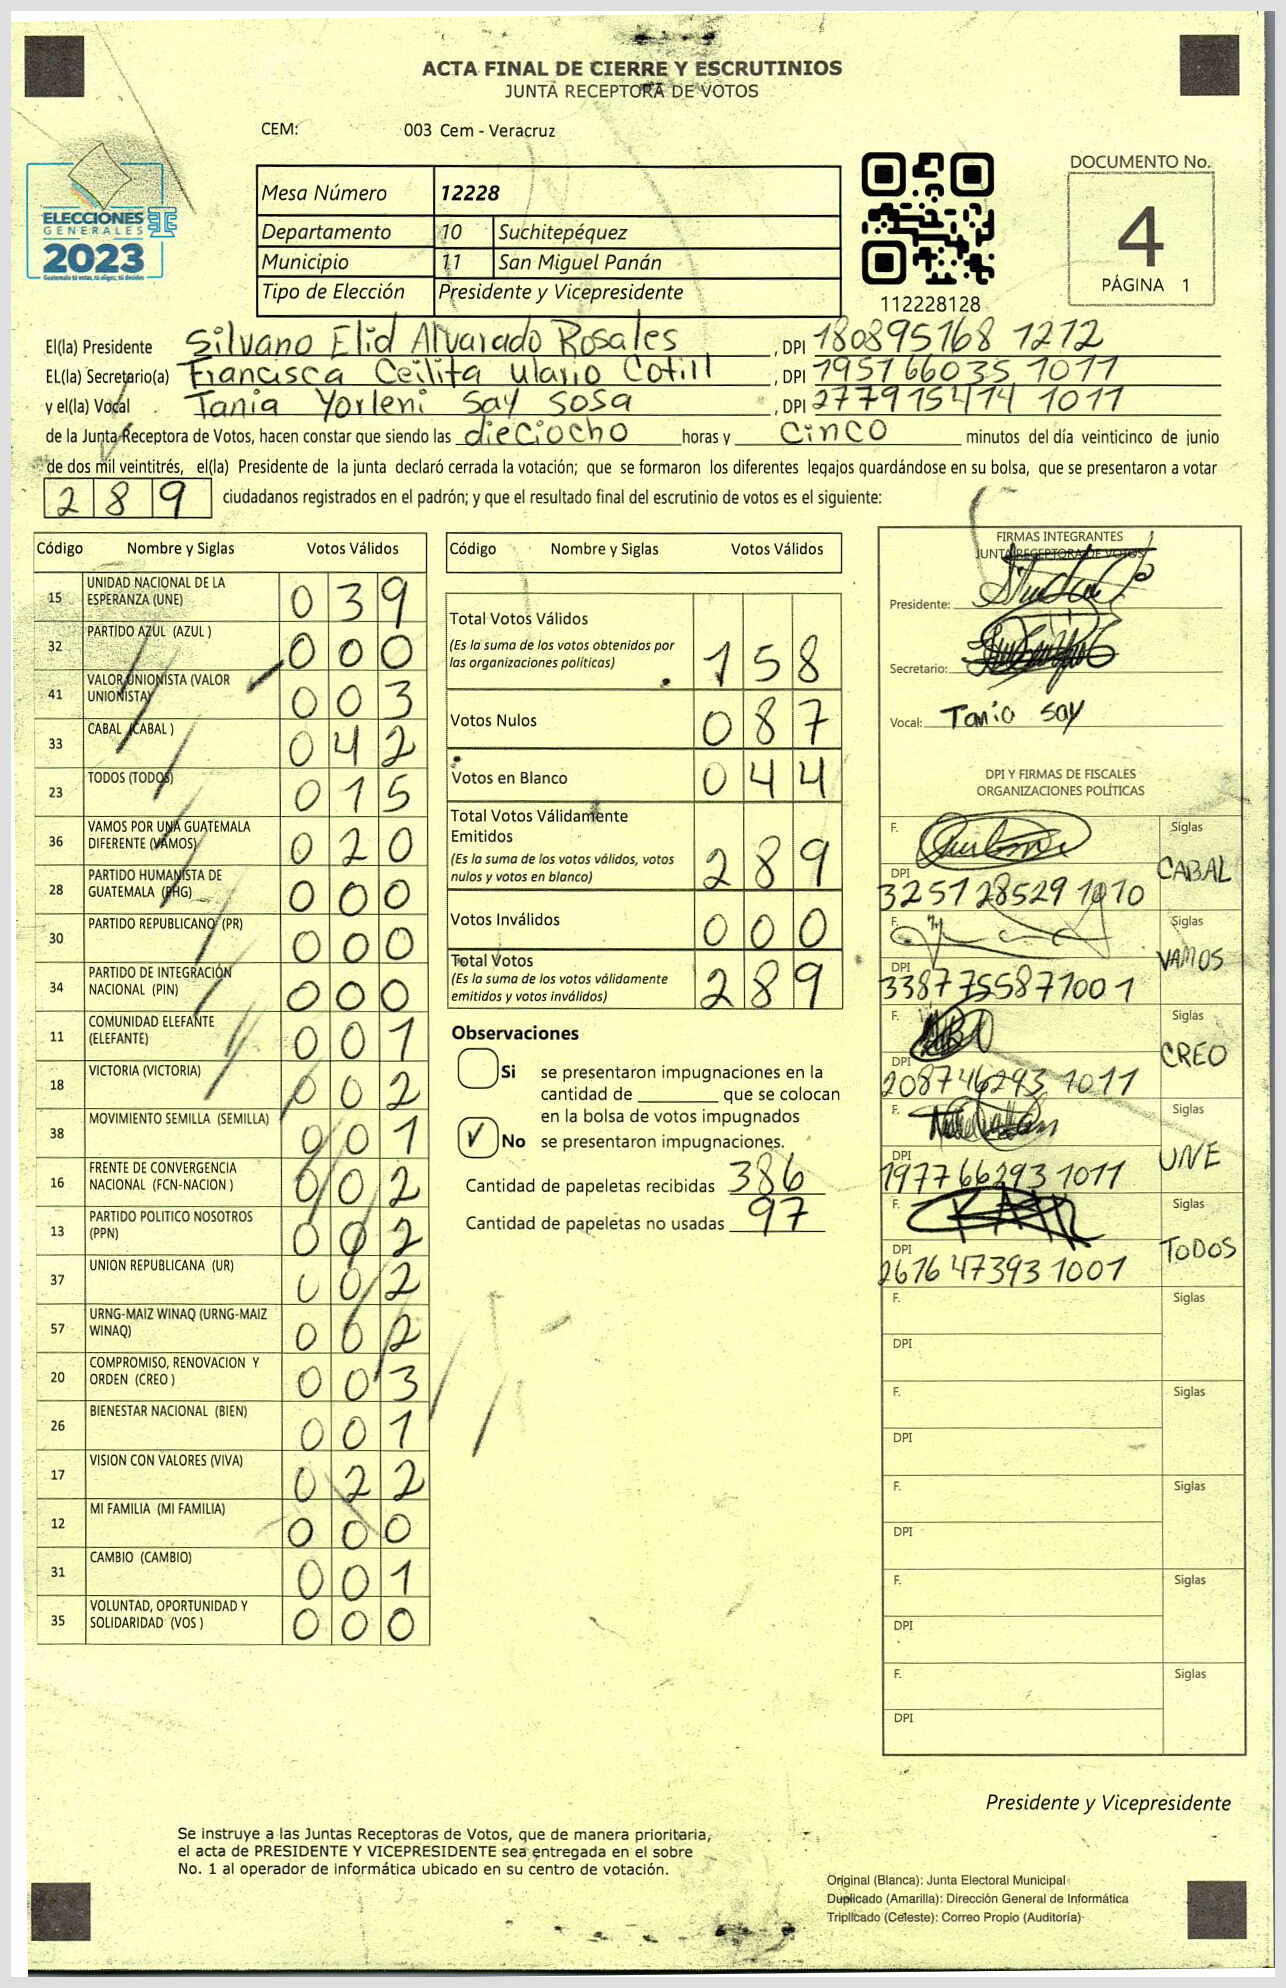 ACTA FINAL DE CIERRE Y ESCRUTINIOS
JUNTA RECEPTORA DE VOTOS
CEM: 003 Cem - Veracruz
ELECCIONES
GENERALES
2023
Guatemala tú votas, tú eliges, tú decides
Mesa Número 12228
Departamento 10 Suchitepéquez
Municipio 11 San Miguel Panán
Tipo de Elección Presidente y Vicepresidente
112228128
DOCUMENTO No.
4
PÁGINA 1
El(la) Presidente Silvano Elid Alvarado Rosales, DPI 180895168 1212
EL(la) Secretario(a) Francisca Ceilita Ulario Cotill, DPI 195166035 1011
y el(la) Vocal Tania Yorleni Say Sosa, DPI 277915414 1011
de la Junta Receptora de Votos, hacen constar que siendo las dieciocho horas y cinco minutos del día veinticinco de junio
de dos mil veintitrés, el(la) Presidente de la junta declaró cerrada la votación; que se formaron los diferentes legajos guardándose en su bolsa, que se presentaron a votar
289 ciudadanos registrados en el padrón; y que el resultado final del escrutinio de votos es el siguiente:
Código Nombre y Siglas Votos Válidos
15 UNIDAD NACIONAL DE LA ESPERANZA (UNE) 039
32 PARTIDO AZUL (AZUL ) 000
41 VALOR UNIONISTA (VALOR UNIONISTA) 003
33 CABAL (CABAL ) 042
23 TODOS (TODOS) 015
36 VAMOS POR UNA GUATEMALA DIFERENTE (VAMOS) 020
28 PARTIDO HUMANISTA DE GUATEMALA (PHG) 000
30 PARTIDO REPUBLICANO (PR) 000
34 PARTIDO DE INTEGRACIÓN NACIONAL (PIN) 000
11 COMUNIDAD ELEFANTE (ELEFANTE) 001
18 VICTORIA (VICTORIA) 002
38 MOVIMIENTO SEMILLA (SEMILLA) 001
16 FRENTE DE CONVERGENCIA NACIONAL (FCN-NACION ) 002
13 PARTIDO POLITICO NOSOTROS (PPN) 002
37 UNION REPUBLICANA (UR) 002
57 URNG-MAIZ WINAQ (URNG-MAIZ WINAQ) 002
20 COMPROMISO, RENOVACION Y ORDEN (CREO ) 003
26 BIENESTAR NACIONAL (BIEN) 001
17 VISION CON VALORES (VIVA) 022
12 MI FAMILIA (MI FAMILIA) 000
31 CAMBIO (CAMBIO) 001
35 VOLUNTAD, OPORTUNIDAD Y SOLIDARIDAD (VOS ) 000
Código Nombre y Siglas Votos Válidos
Total Votos Válidos 158
(Es la suma de los votos obtenidos por
las organizaciones políticas)
Votos Nulos 087
Votos en Blanco 044
Total Votos Válidamente
Emitidos 289
(Es la suma de los votos válidos, votos
nulos y votos en blanco)
Votos Inválidos 000
Total Votos 289
(Es la suma de los votos válidamente
emitidos y votos inválidos)
Observaciones
Si se presentaron impugnaciones en la
cantidad de ________ que se colocan
en la bolsa de votos impugnados
✓ No se presentaron impugnaciones.
Cantidad de papeletas recibidas 386
Cantidad de papeletas no usadas 97
FIRMAS INTEGRANTES
JUNTA RECEPTORA DE VOTOS
Presidente:
Secretario:
Vocal: Tania Say
DPI Y FIRMAS DE FISCALES
ORGANIZACIONES POLÍTICAS
F. Siglas
DPI 325128529 1010 CABAL
F. Siglas
DPI 3387755871001 VAMOS
F. Siglas
DPI 208746293 1011 CREO
F. Siglas
DPI 197766293 1011 UNE
F. Siglas
DPI 2616473931001 TODOS
F. Siglas
DPI
F. Siglas
DPI
F. Siglas
DPI
F. Siglas
DPI
F. Siglas
DPI
Presidente y Vicepresidente
Se instruye a las Juntas Receptoras de Votos, que de manera prioritaria,
el acta de PRESIDENTE Y VICEPRESIDENTE sea entregada en el sobre
No. 1 al operador de informática ubicado en su centro de votación.
Original (Blanca): Junta Electoral Municipal
Duplicado (Amarilla): Dirección General de Informática
Triplicado (Celeste): Correo Propio (Auditoría)